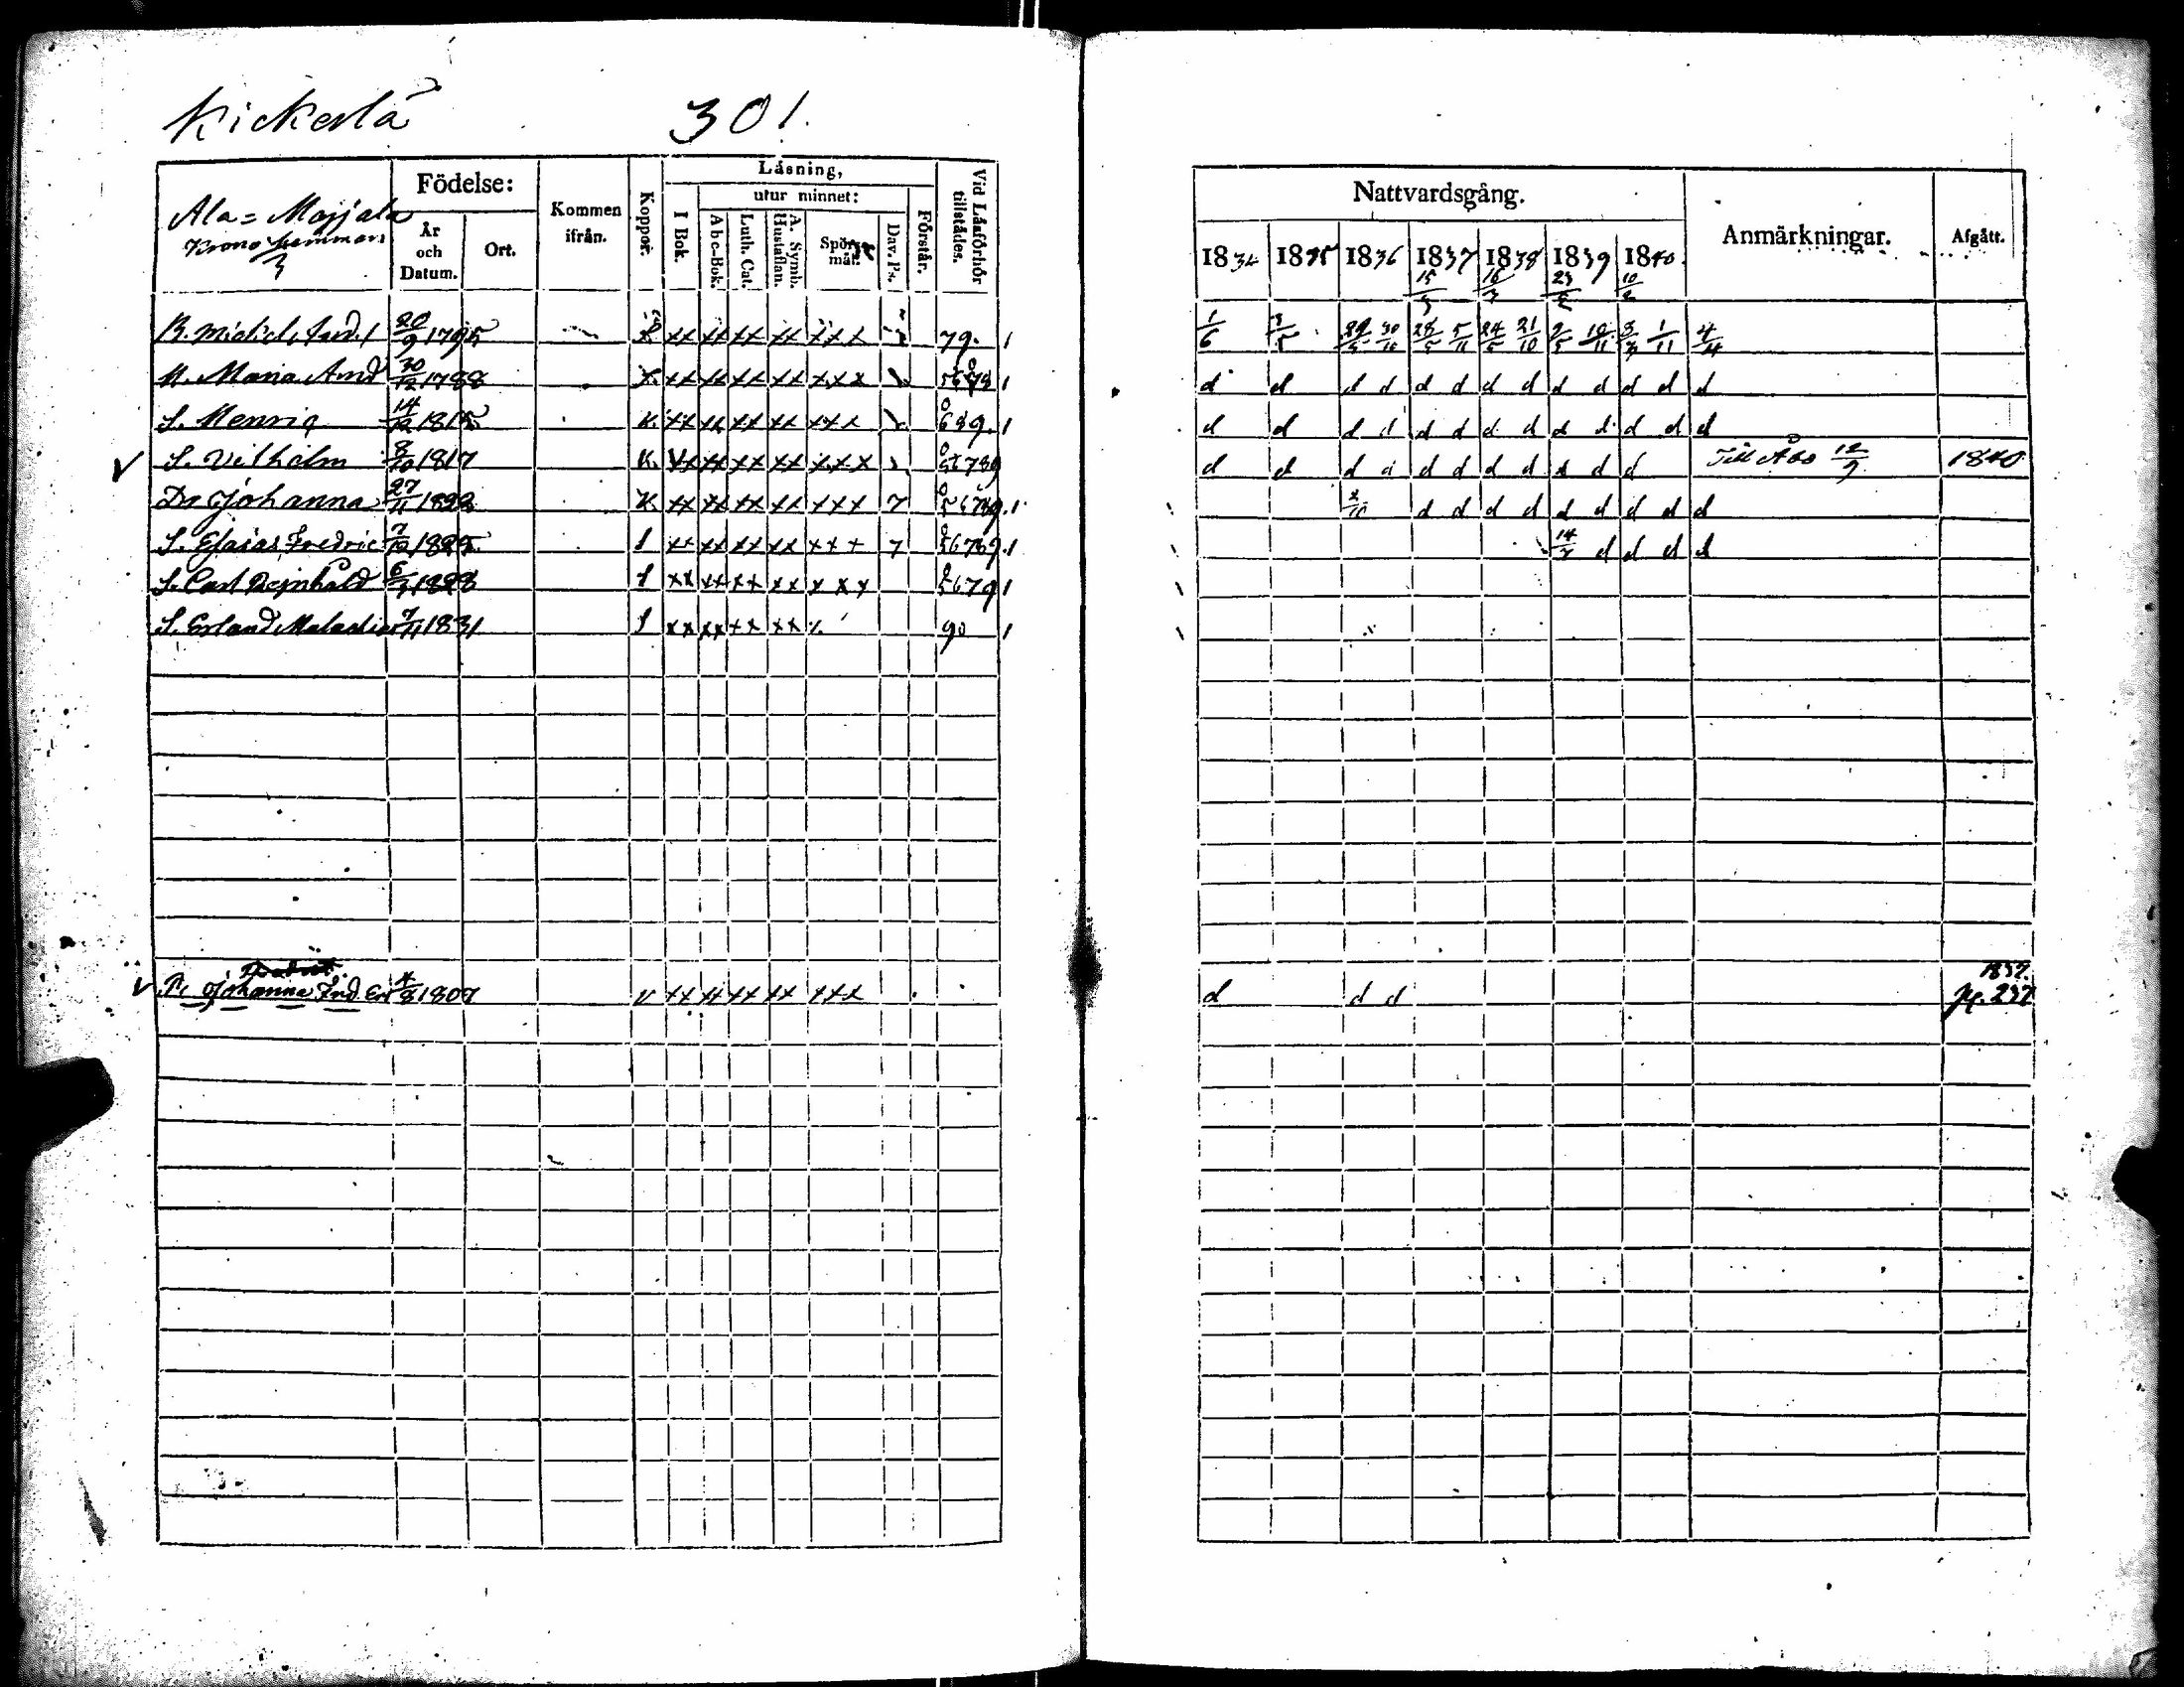 Kickerlä 301.
Ala=Marjala
Krono hemman
3
Födelse:
År och Datum.
Ort.
Kommen ifrån.
Koppor.
Läsning,
I Bok.
utur minnet:
Abc-Bok.
Luth. Cat.
A. Symb. Hustaflan.
Spörs mål.
Dav. Ps.
Förstår.
Vid Läsförhör tillstädes.
B. Michel And. 20/9 1795 xx xx xx xx xxx 79. 1
H. Maria And 30/12 1788 xx xx xx xx xxx 1
S. Henric 14/12 1815 K. xx xx xx xx xxx 689. 1
S. Vilhelm 8/10 1817 K. xx xx xx xx xxx
Dr Johanna 27/11 1822 K. xx xx xx xx xxx 7
S. Esaias Fredric 7/12 1825 1 xx xx xx xx xxx 7
S. Carl Rejnhold 1828 1 xx xx xx xx xxx 5679 1
S. Erland Malachias 7/11 1831 1 xx xx xx xx 90 1
P. Johanna Frd. 4/8 1807 v xx xx xx xx xxx
Nattvardsgång.
Anmärkningar.
Afgått.
1834 1835 1836 1837 1838 1839 1840.
15/3 16/3 23/2 10/2
1/6 3/5 29/5 30/10 28/5 5/11 24/5 21/10 2/5 10/11 3/3 1/11 4/4
d d d d d d d d d d d d d
d d d d d d d d d d d d d
d d d d d d d d d d d Till Åbo 12/9 1840
2/10 d d d d d d d d d
14/7 d d d d
1837.
d d d p. 237